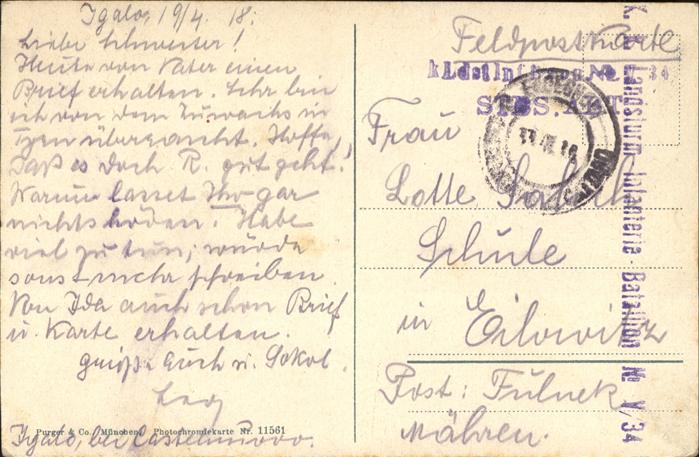 Igalo, 19/4. 18.
Liebe Schwester!
Heute von Vater einen
Brief erhalten. Sehr bin
ich von dem Zuwachs in
überrascht. Hoffe,
daß es doch R. gut geht!
Warum lasset Ihr gar
nichts hören. Habe
viel zu tun, würde
sonst mehr schreiben.
Von Ida auch schon Brief
u. Karte erhalten.
Grüße Euch u. Sokol.
Purger & Co., München. Photochromiekarte Nr. 11561
Igalo, bei Castelnuovo.
Feldpostkarte
Frau
Lotte
Schule
in Eilowitz
Post: Fulnek
Mähren.
K. k. Landsturm-Infanterie-Bataillon № V/34